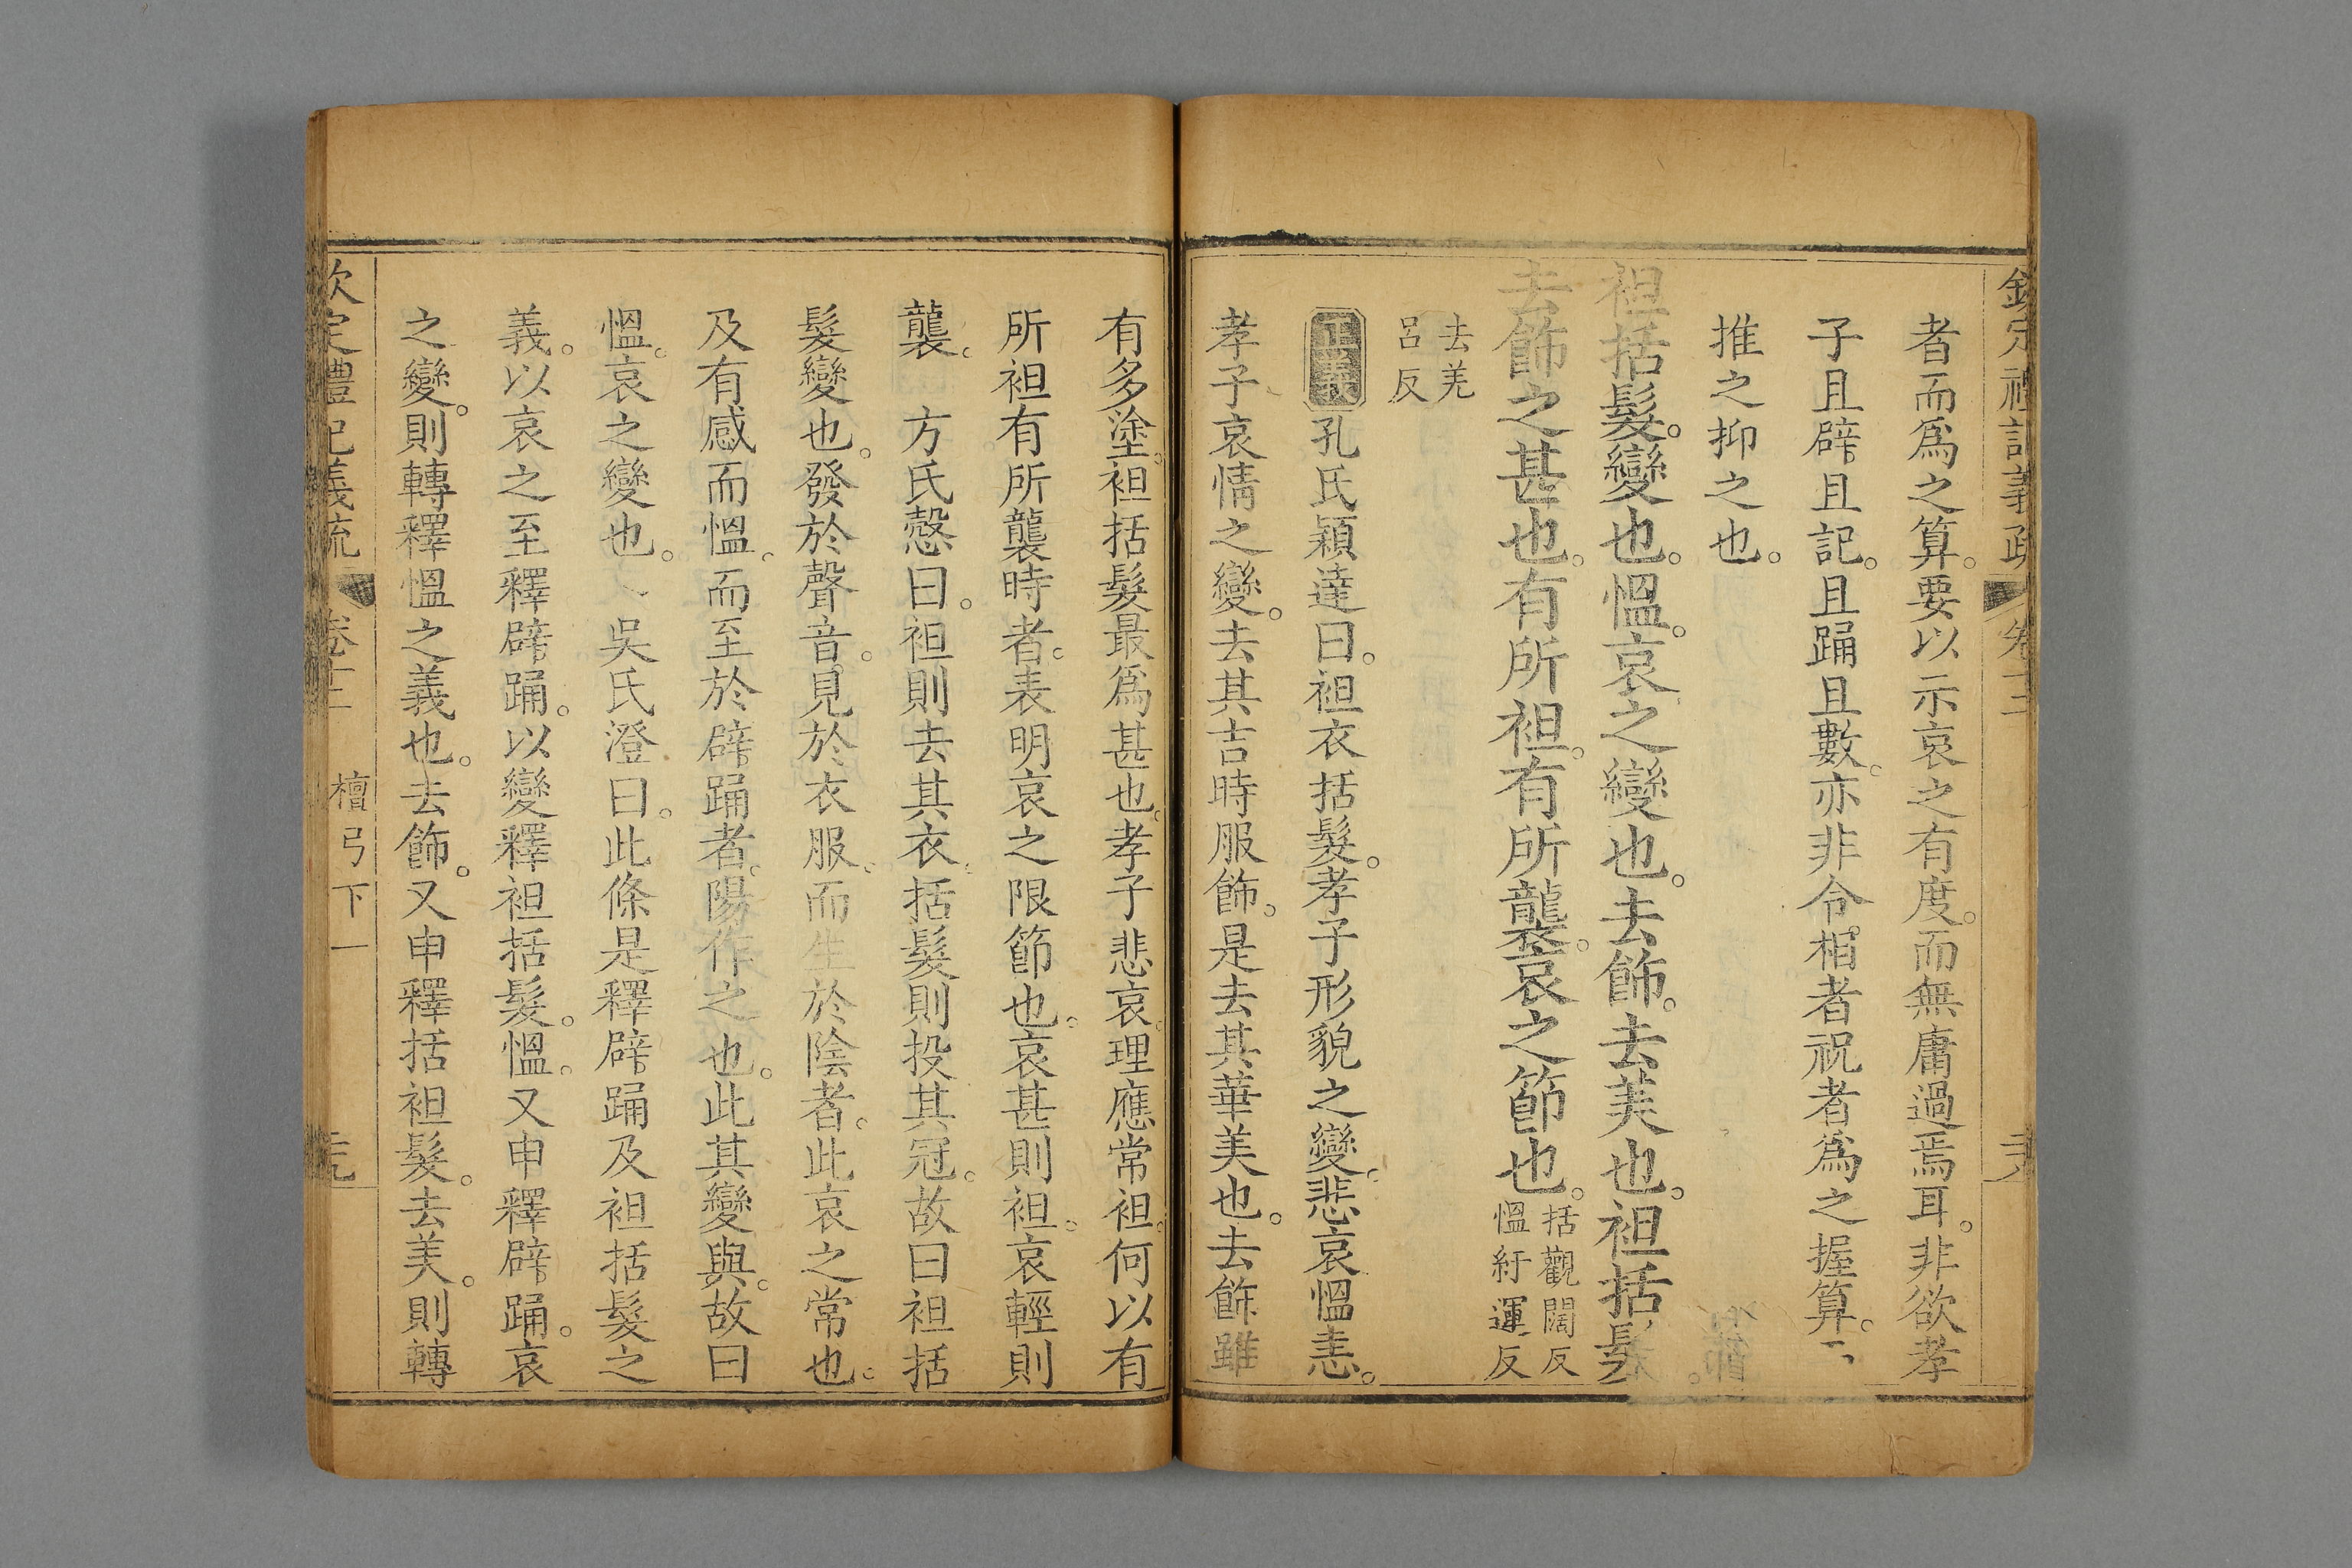 欽定禮記義疏 卷十二 二十八
者而爲之算。要以示哀之有度。而無庸過焉耳。非欲孝
子且辟且記。且踊且數。亦非令相者祝者爲之握算。
推之抑之也。
袒括髮。變也。慍。哀之變也。去飾。去美也。袒括髮
去飾之甚也。有所袒。有所襲。哀之節也。括觀闊反 慍紆運反
去羌呂反
正義 孔氏穎達曰。袒衣括髮。孝子形貌之變。悲哀慍恚。
孝子哀情之變。去其吉時服飾。是去其華美也。去飾雖
有多塗。袒括髮最爲甚也。孝子悲哀。理應常袒。何以有
所袒有所襲時者。表明哀之限節也。哀甚則袒。哀輕則
襲。 方氏慤曰。袒則去其衣。括髮則投其冠。故曰袒括
髮變也。發於聲音。見於衣服。而生於陰者。此哀之常也。
及有感而慍。而至於辟踊者。陽作之也。此其變與。故曰
慍。哀之變也。 吳氏澄曰。此條是釋辟踊及袒括髮之
義。以哀之至釋辟踊。以變釋袒括髮。慍。又申釋辟踊。哀
之變。則轉釋慍之義也。去飾。又申釋括袒髮。去美。則轉
欽定禮記義疏 卷十二 檀弓下一 二十九